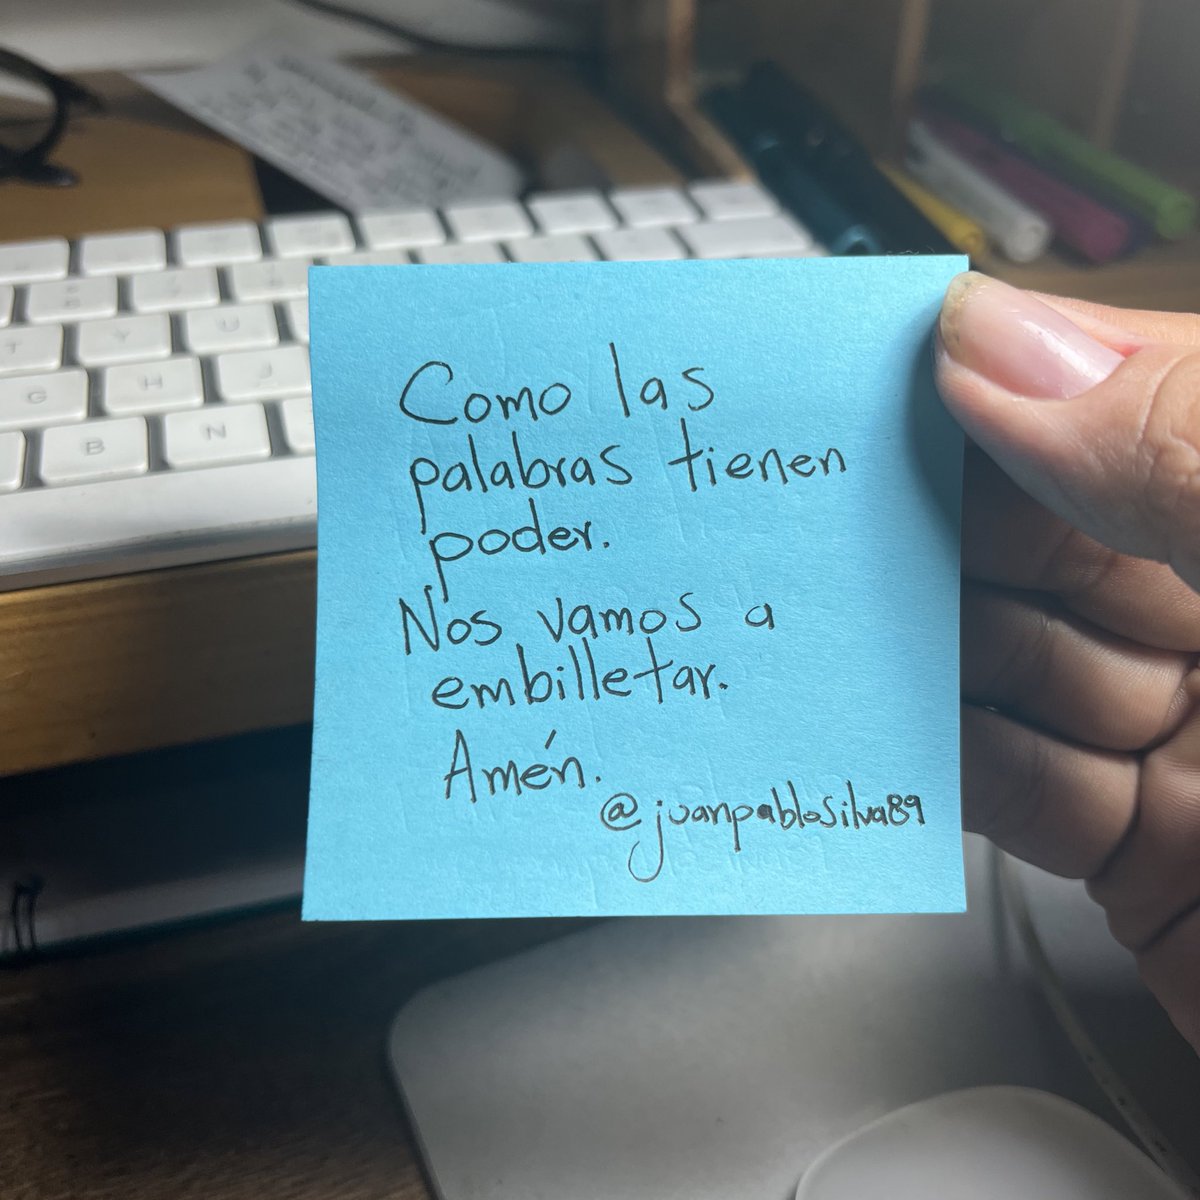 Como las
palabras tienen
poder.
Nos vamos a
embilletar.
Amén.
@juanpablosilva89
T
Y
U
G
H
J
B
N